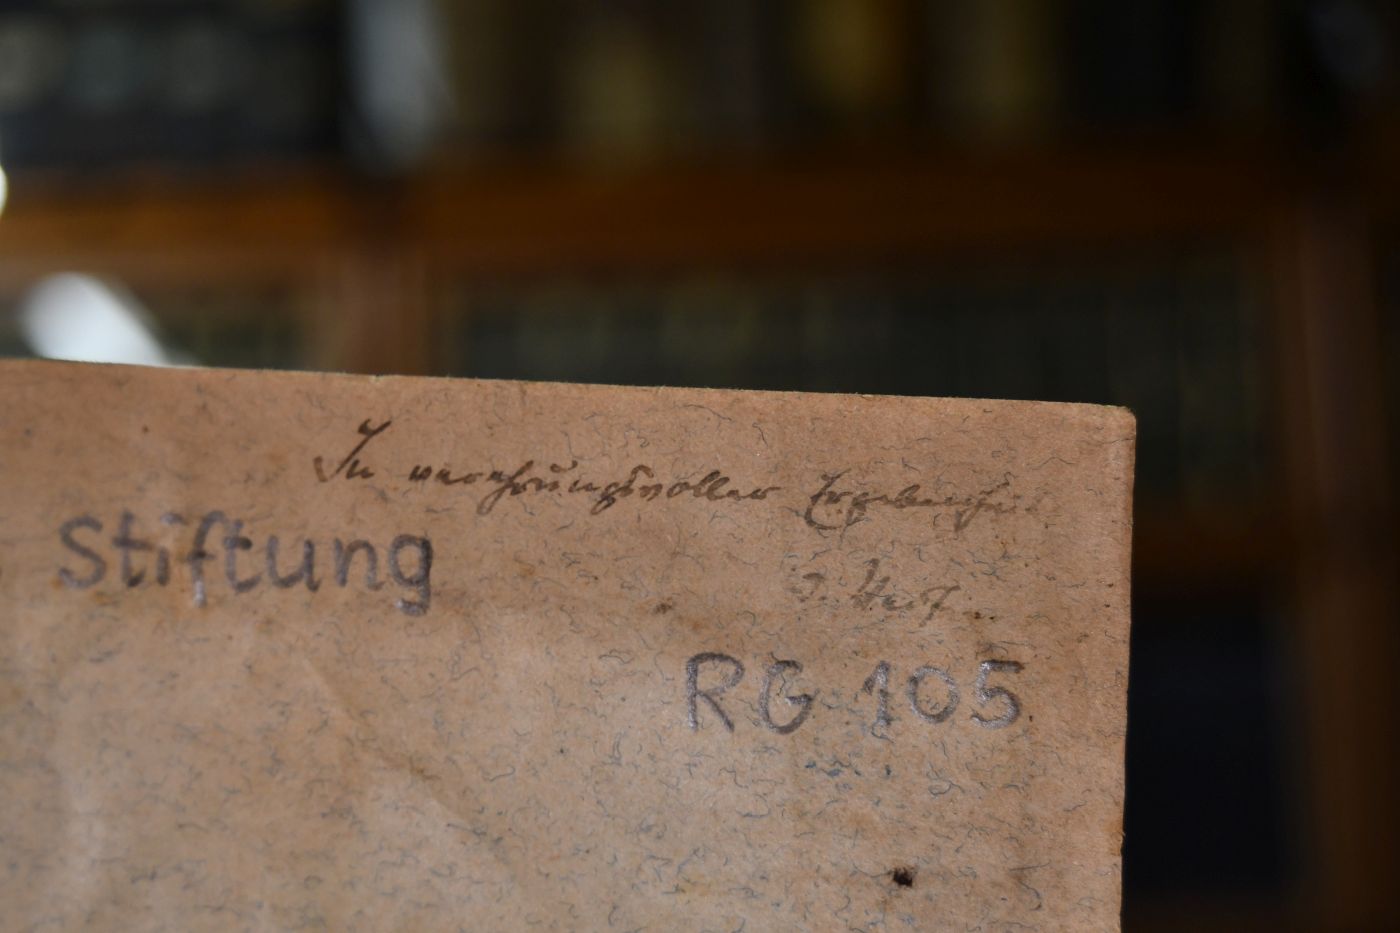 In verehrungsvoller Ergebenheit
Stiftung
RG 105